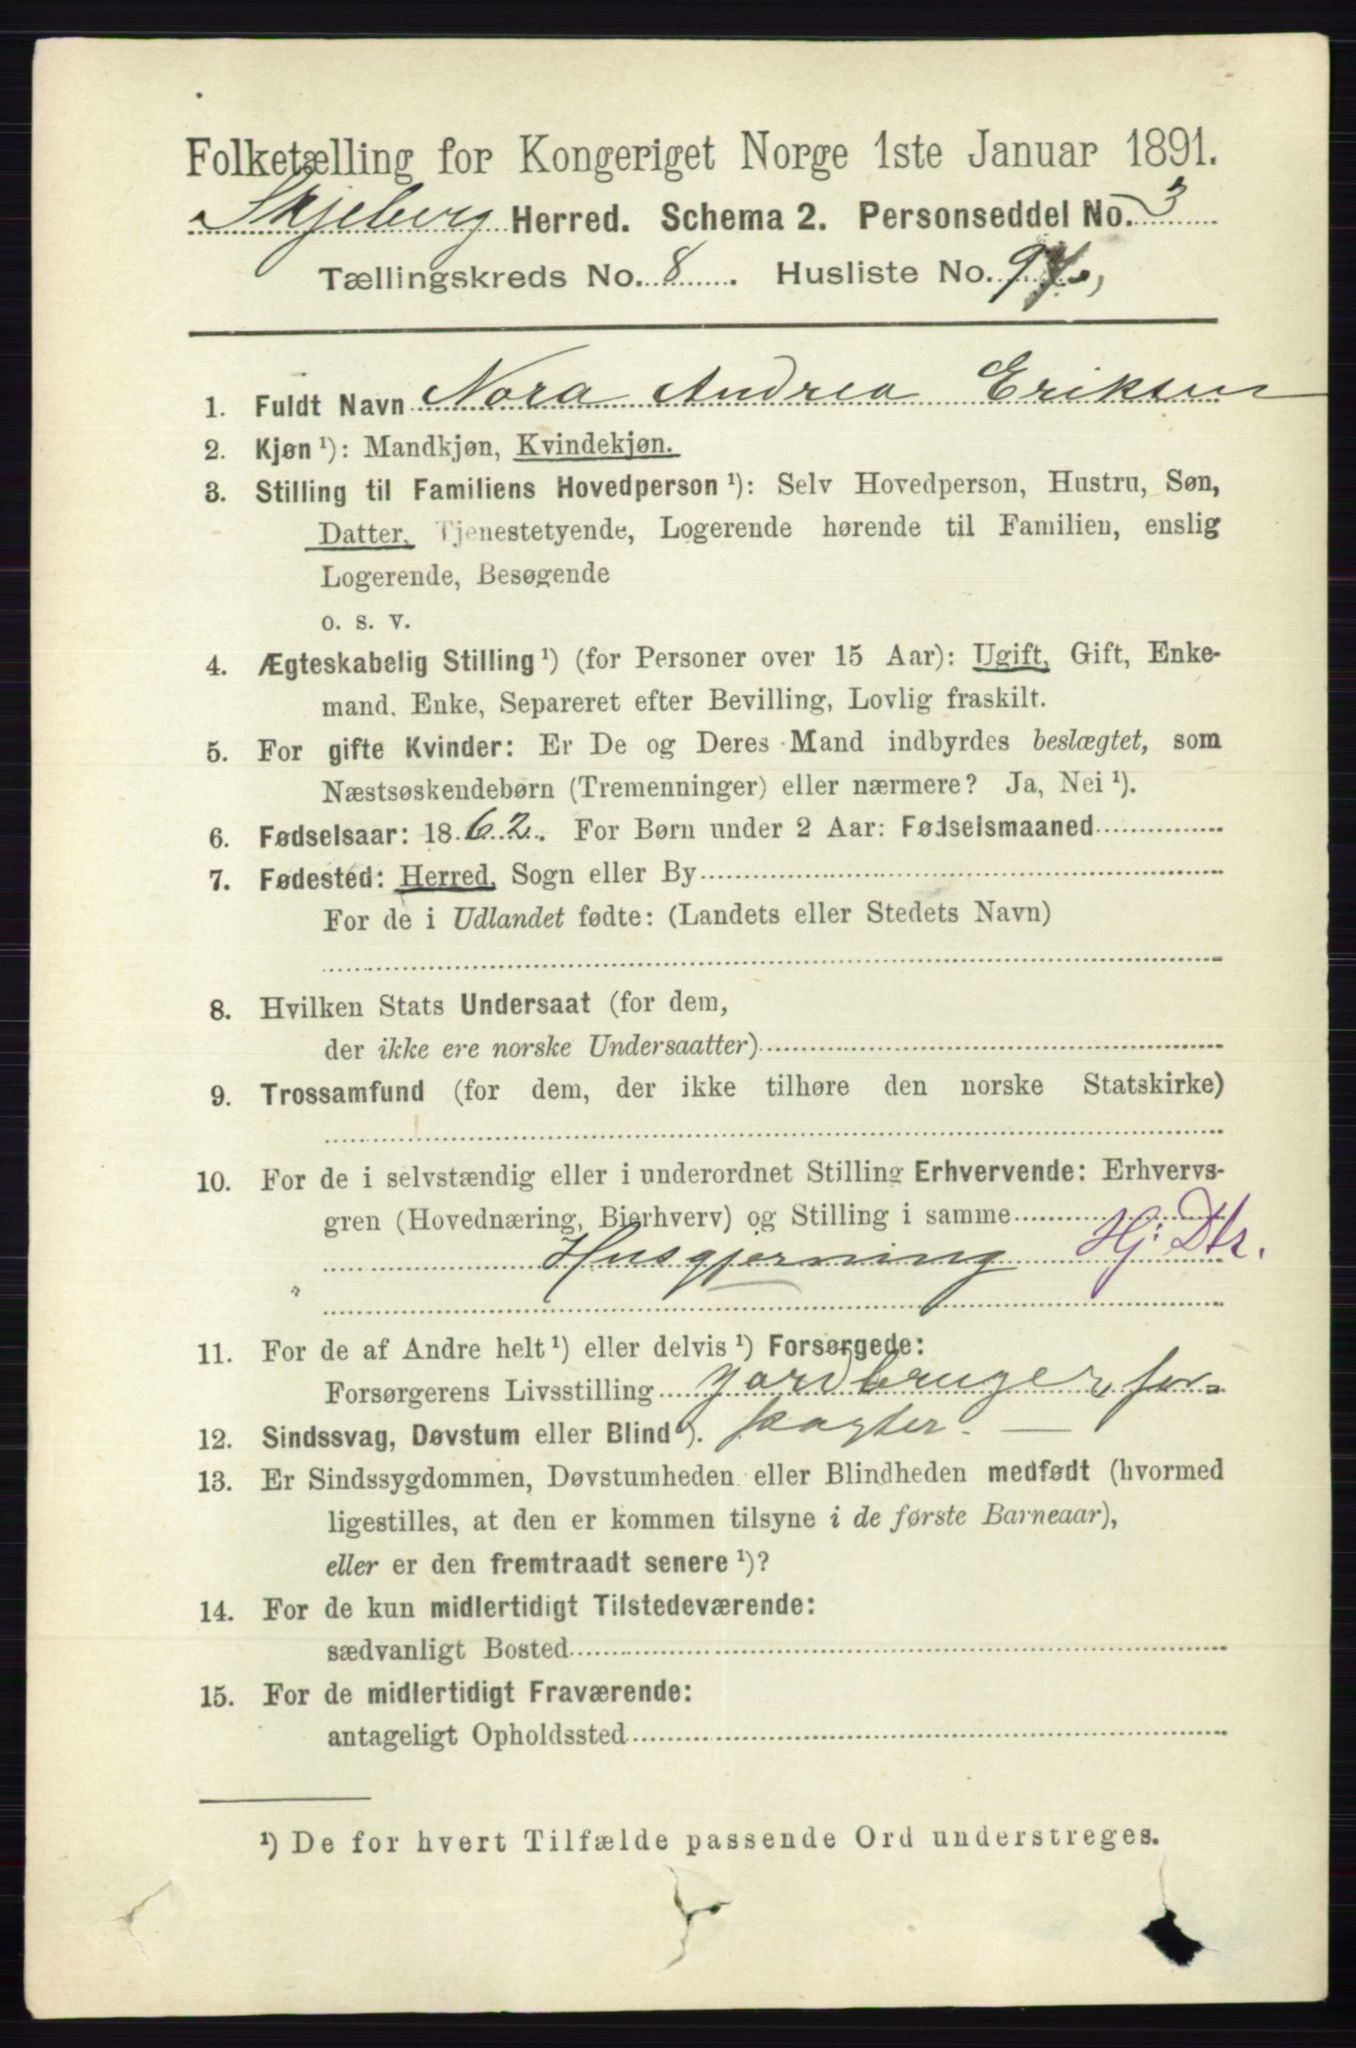 Folketælling for Kongeriget Norge 1ste Januar 1891.
Skjeberg Herred. Schema 2. Personseddel No. 3
Tællingskreds No. 8. Husliste No.
1. Fuldt Navn Nora Andrea Eriksen
2. Kjøn ¹): Mandkjøn, Kvindekjøn.
3. Stilling til Familiens Hovedperson ¹): Selv Hovedperson, Hustru, Søn,
Datter, Tjenestetyende, Logerende hørende til Familien, enslig
Logerende, Besøgende
o. s. v.
4. Ægteskabelig Stilling ¹) (for Personer over 15 Aar): Ugift, Gift, Enke-
mand, Enke, Separeret efter Bevilling, Lovlig fraskilt.
5. For gifte Kvinder: Er De og Deres Mand indbyrdes beslægtet, som
Næstsøskendebørn (Tremenninger) eller nærmere? Ja, Nei ¹).
6. Fødselsaar: 1862. For Børn under 2 Aar: Fødselsmaaned
7. Fødested: Herred, Sogn eller By
For de i Udlandet fødte: (Landets eller Stedets Navn)
8. Hvilken Stats Undersaat (for dem,
der ikke ere norske Undersaatter)
9. Trossamfund (for dem, der ikke tilhøre den norske Statskirke)
10. For de i selvstændig eller i underordnet Stilling Erhvervende: Erhvervs-
gren (Hovednæring, Bierhverv) og Stilling i samme
Husgjerning Hj: Dtr.
11. For de af Andre helt ¹) eller delvis ¹) Forsørgede:
Forsørgerens Livsstilling Jordbruger, for-
12. Sindssvag, Døvstum eller Blind ¹). pagter. —
13. Er Sindssygdommen, Døvstumheden eller Blindheden medfødt (hvormed
ligestilles, at den er kommen tilsyne i de første Barneaar),
eller er den fremtraadt senere ¹)?
14. For de kun midlertidigt Tilstedeværende:
sædvanligt Bosted
15. For de midlertidigt Fraværende:
antageligt Opholdssted
¹) De for hvert Tilfælde passende Ord understreges.